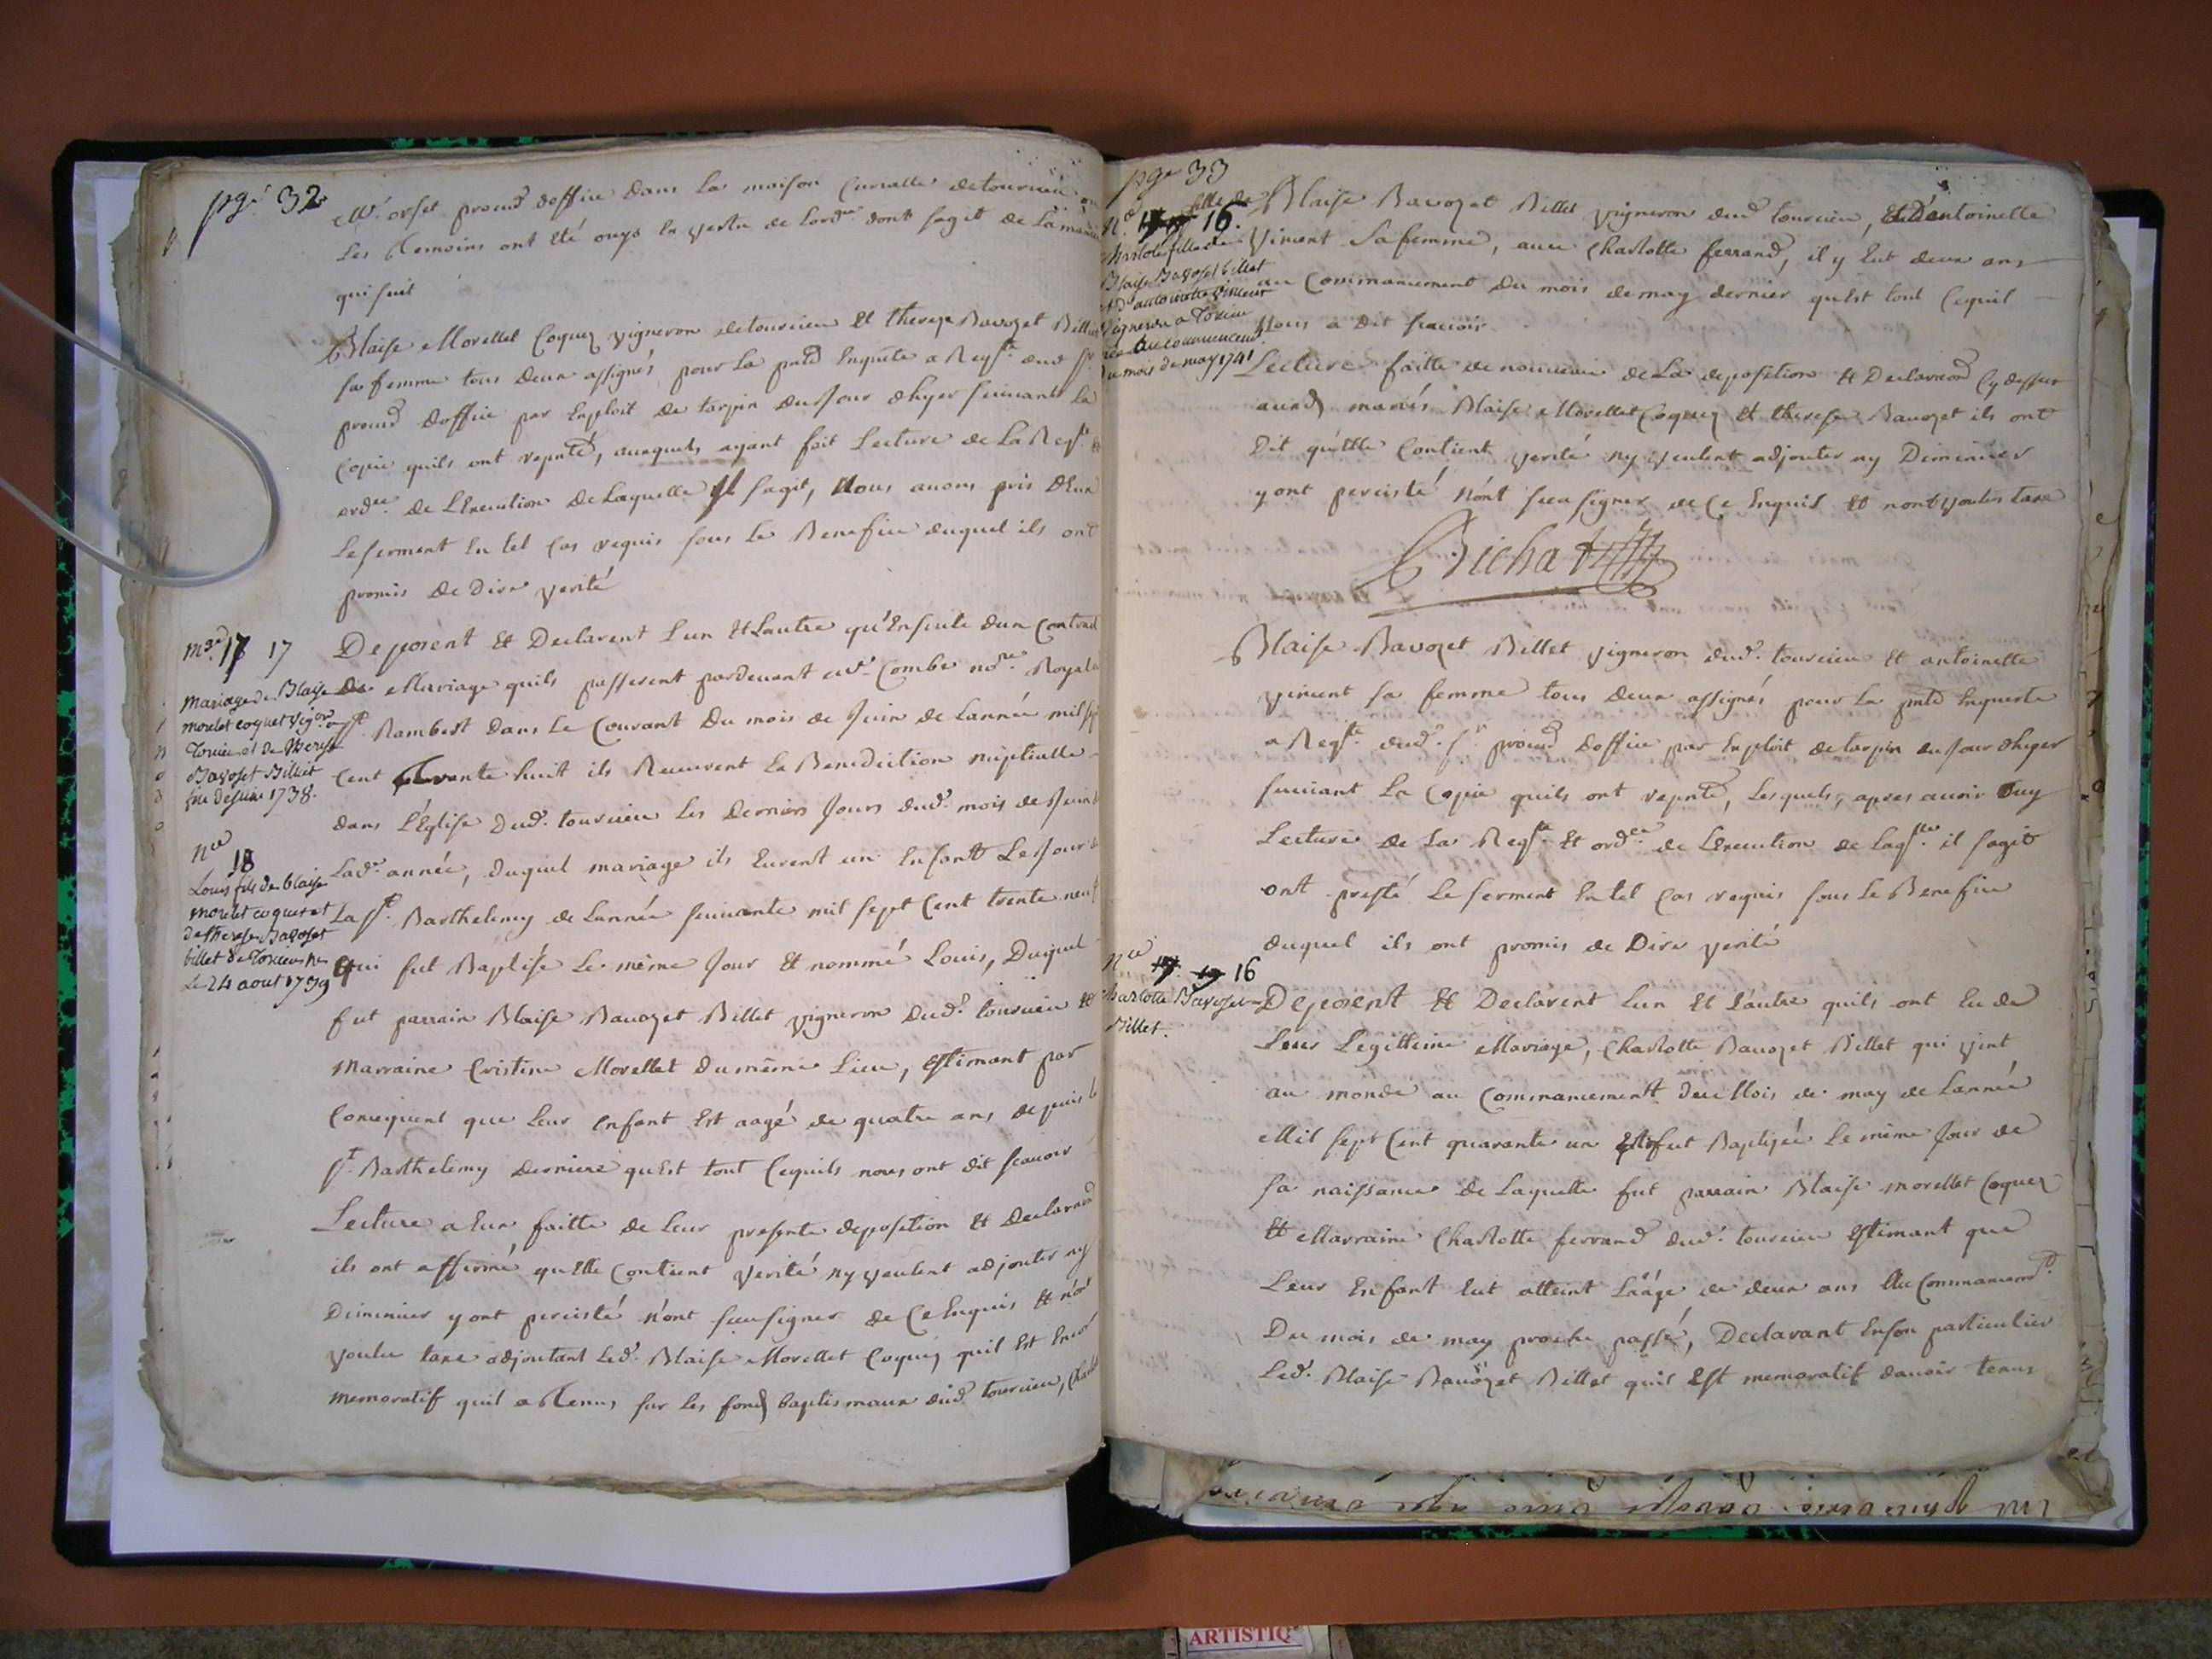 pge 32
Mr. orset procd doffice dans la maison Curialle de tourcieu ou
Les Temoins ont eté ouys en vertu de Lordce dont sagit de La maniere
qui suit
Blaise Morellet Coquez vigneron de tourcieu Et therese Bavozet Billet
sa femme tous deux assignés pour La pntte Enquete a Reqte dud Sr
procd doffice par Exploit de tarpin du Jour d'hyer suivant La
Copie quils ont repntée, auxquels ayant fait Lecture de La Reqte &
ordce de L'Execution de Laquelle Il sagit, Nous avons pris d'Eux
Le serment En tel Cas requis sous Le Benefice duquel ils ont
promis de dire verité
mge 17 17
Mariage de Blaise
morelet coquet vigon a
Torcieu et de therese
Bavoset Billiet
fin de juin 1738.
Deposent Et Declarent L'un Et Lautre qu'Ensuite d'un Contract
de Mariage quils passerent pardevant Me Combe nore Royal a
St Rambert dans Le Courant du mois de Juin de Lannée mil sept
Cent Trente huit ils Receurent La Benediction nuptialle
dans L'Eglise dud. tourcieu Les Derniers Jours dud. mois de Juin de
Lade année, duquel mariage ils Eurent un Enfant Le Jour de
La St Barthelemy de Lannée suivante mil sept Cent trente neuf
Qui fut Baptisé Le même Jour Et nommé Louis, Duquel
fut parrain Blaise Bavozet Billet vigneron dud. tourcieu Et
marraine Cristine Morellet du même Lieu, Estimant par
Consequent que Leur Enfant Est aagé de quatre ans depuis la
St Barthelemy derniere qu'Est tout Cequils nous ont dit scavoir
nce
18
Louis fils de blaise
morelet coquet et
de therese Bavoset
billet de Torcieu ne
Le 24 aout 1739
Lecture a Eux faitte de Leur presente deposition Et Declaraon
ils ont affirmé quElle Contient Verité ny veulent adjouter ny
Diminuer y ont percisté n'ont sceu signer de Ce Enquis Et n'ont
voulu taxe adjoutant Led. Blaise Morellet Coquez quil Est Encor
memoratif quil a Tenus sur Les fonds baptismaux dud tourcieu, Charlotte
pge 33
Nce 17 19 16. fille de
charlote fille de
Blaise Bavoset billet
et d'antoinette vincent
vigneron a Torcieu
née au commencemt
du mois de may 1741
Blaise Bavozet Billet vigneron dud tourcieu, Et D'antoinelle
Vincent sa femme, avec Charlotte ferrand, il y Eut deux ans
au Commancement du mois de may dernier qu'Est tout Cequil
Nous a dit scavoir
Lecture faitte de nouveau de La deposition Et Declaraon Cy dessus
auxds mariés Blaise Morellet Coquez Et therese Bavozet ils ont
Dit qu'Elle Contient verité ny veulent adjouter ny Diminuer
y ont percisté n'ont sceu signer de Ce Enquis Et n'ont voulus taxe
Bichat
Blaise Bavozet Billet vigneron dud. tourcieu Et antoinette
vincent sa femme tous deux assignés pour La pntte Enqueste
a Reqte dud. Sr procd doffice par Exploit de tarpin du Jour d'hyer
suivant La Copie quils ont repntée, Lesquels, apres avoir Ouy
Lecture de La Reqte Et ordce de L'Execution de Laqlle il sagit
ont presté Le serment En tel Cas requis sous Le Benefice
duquel ils ont promis de Dire verité
Nce 17. 19 16
Charlotte Bavoset
Billet.
Deposent Et Declarent L'un Et L'autre quils ont Eu de
Leur Legittime Mariage, Charlotte Bavozet Billet qui vint
au monde au Commancement du Mois de may de Lannée
Mil sept Cent quarante un Et fut Baptisée Le même Jour de
sa naissance de Laquelle fut parrain Blaise morellet Coquez
Et Marraine Charlotte ferrand dud. tourcieu Estimant que
Leur Enfant Eut atteint L'aáge de deux ans Au Commancemt
Du mois de may proche passé, Declarant En son particulier
Led. Blaise Bavozet Billet quil Est memoratif davoir tenus
ARTISTIQ